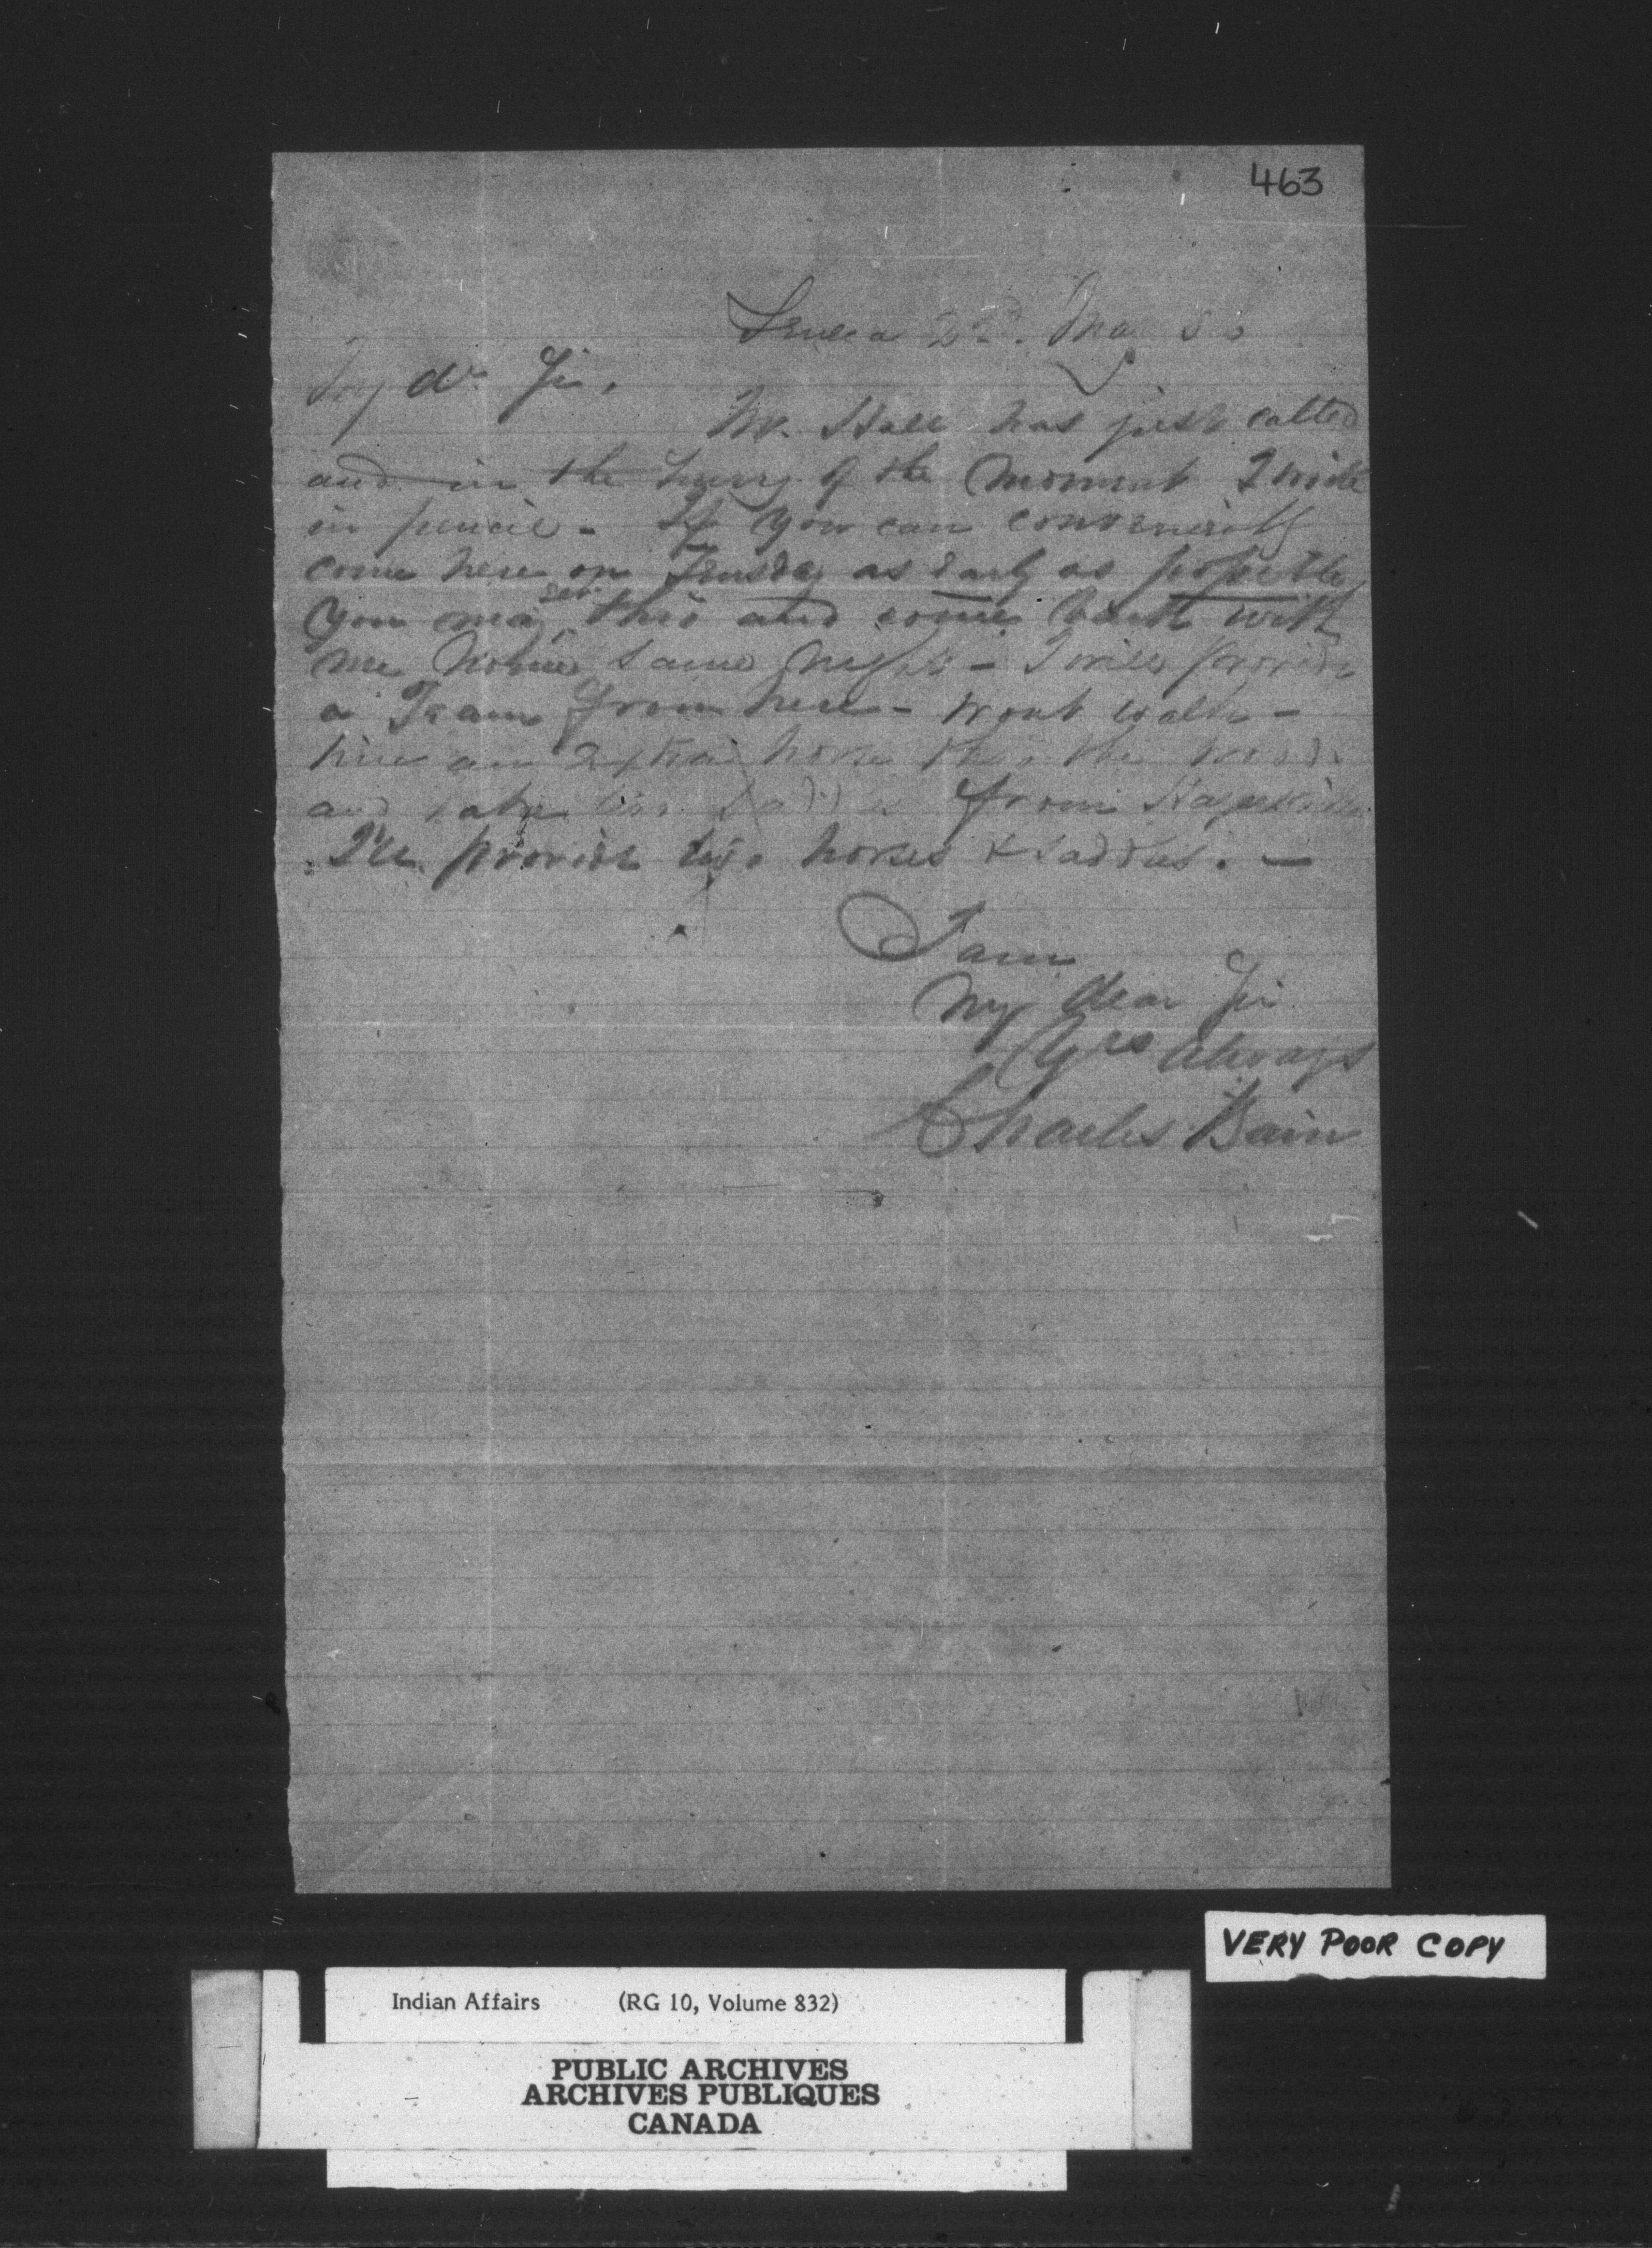 463
Seneca 22d. Mar 56
My dr Sir,
Mr. Hall has just called
and in the hurry of the moment I write
in pencil - If you can conveniently
come here on Tuesday as early as possible
you may see this and come back with
me home same night - I will provide
a Team from here - wont walk -
hire an extra horse the
and take from Hagersville
I'll provide two horses & saddles. -
I am
My dear Sir
Yrs always
Charles Bain
VERY POOR COPY
Indian Affairs (RG 10, Volume 832)
PUBLIC ARCHIVES
ARCHIVES PUBLIQUES
CANADA